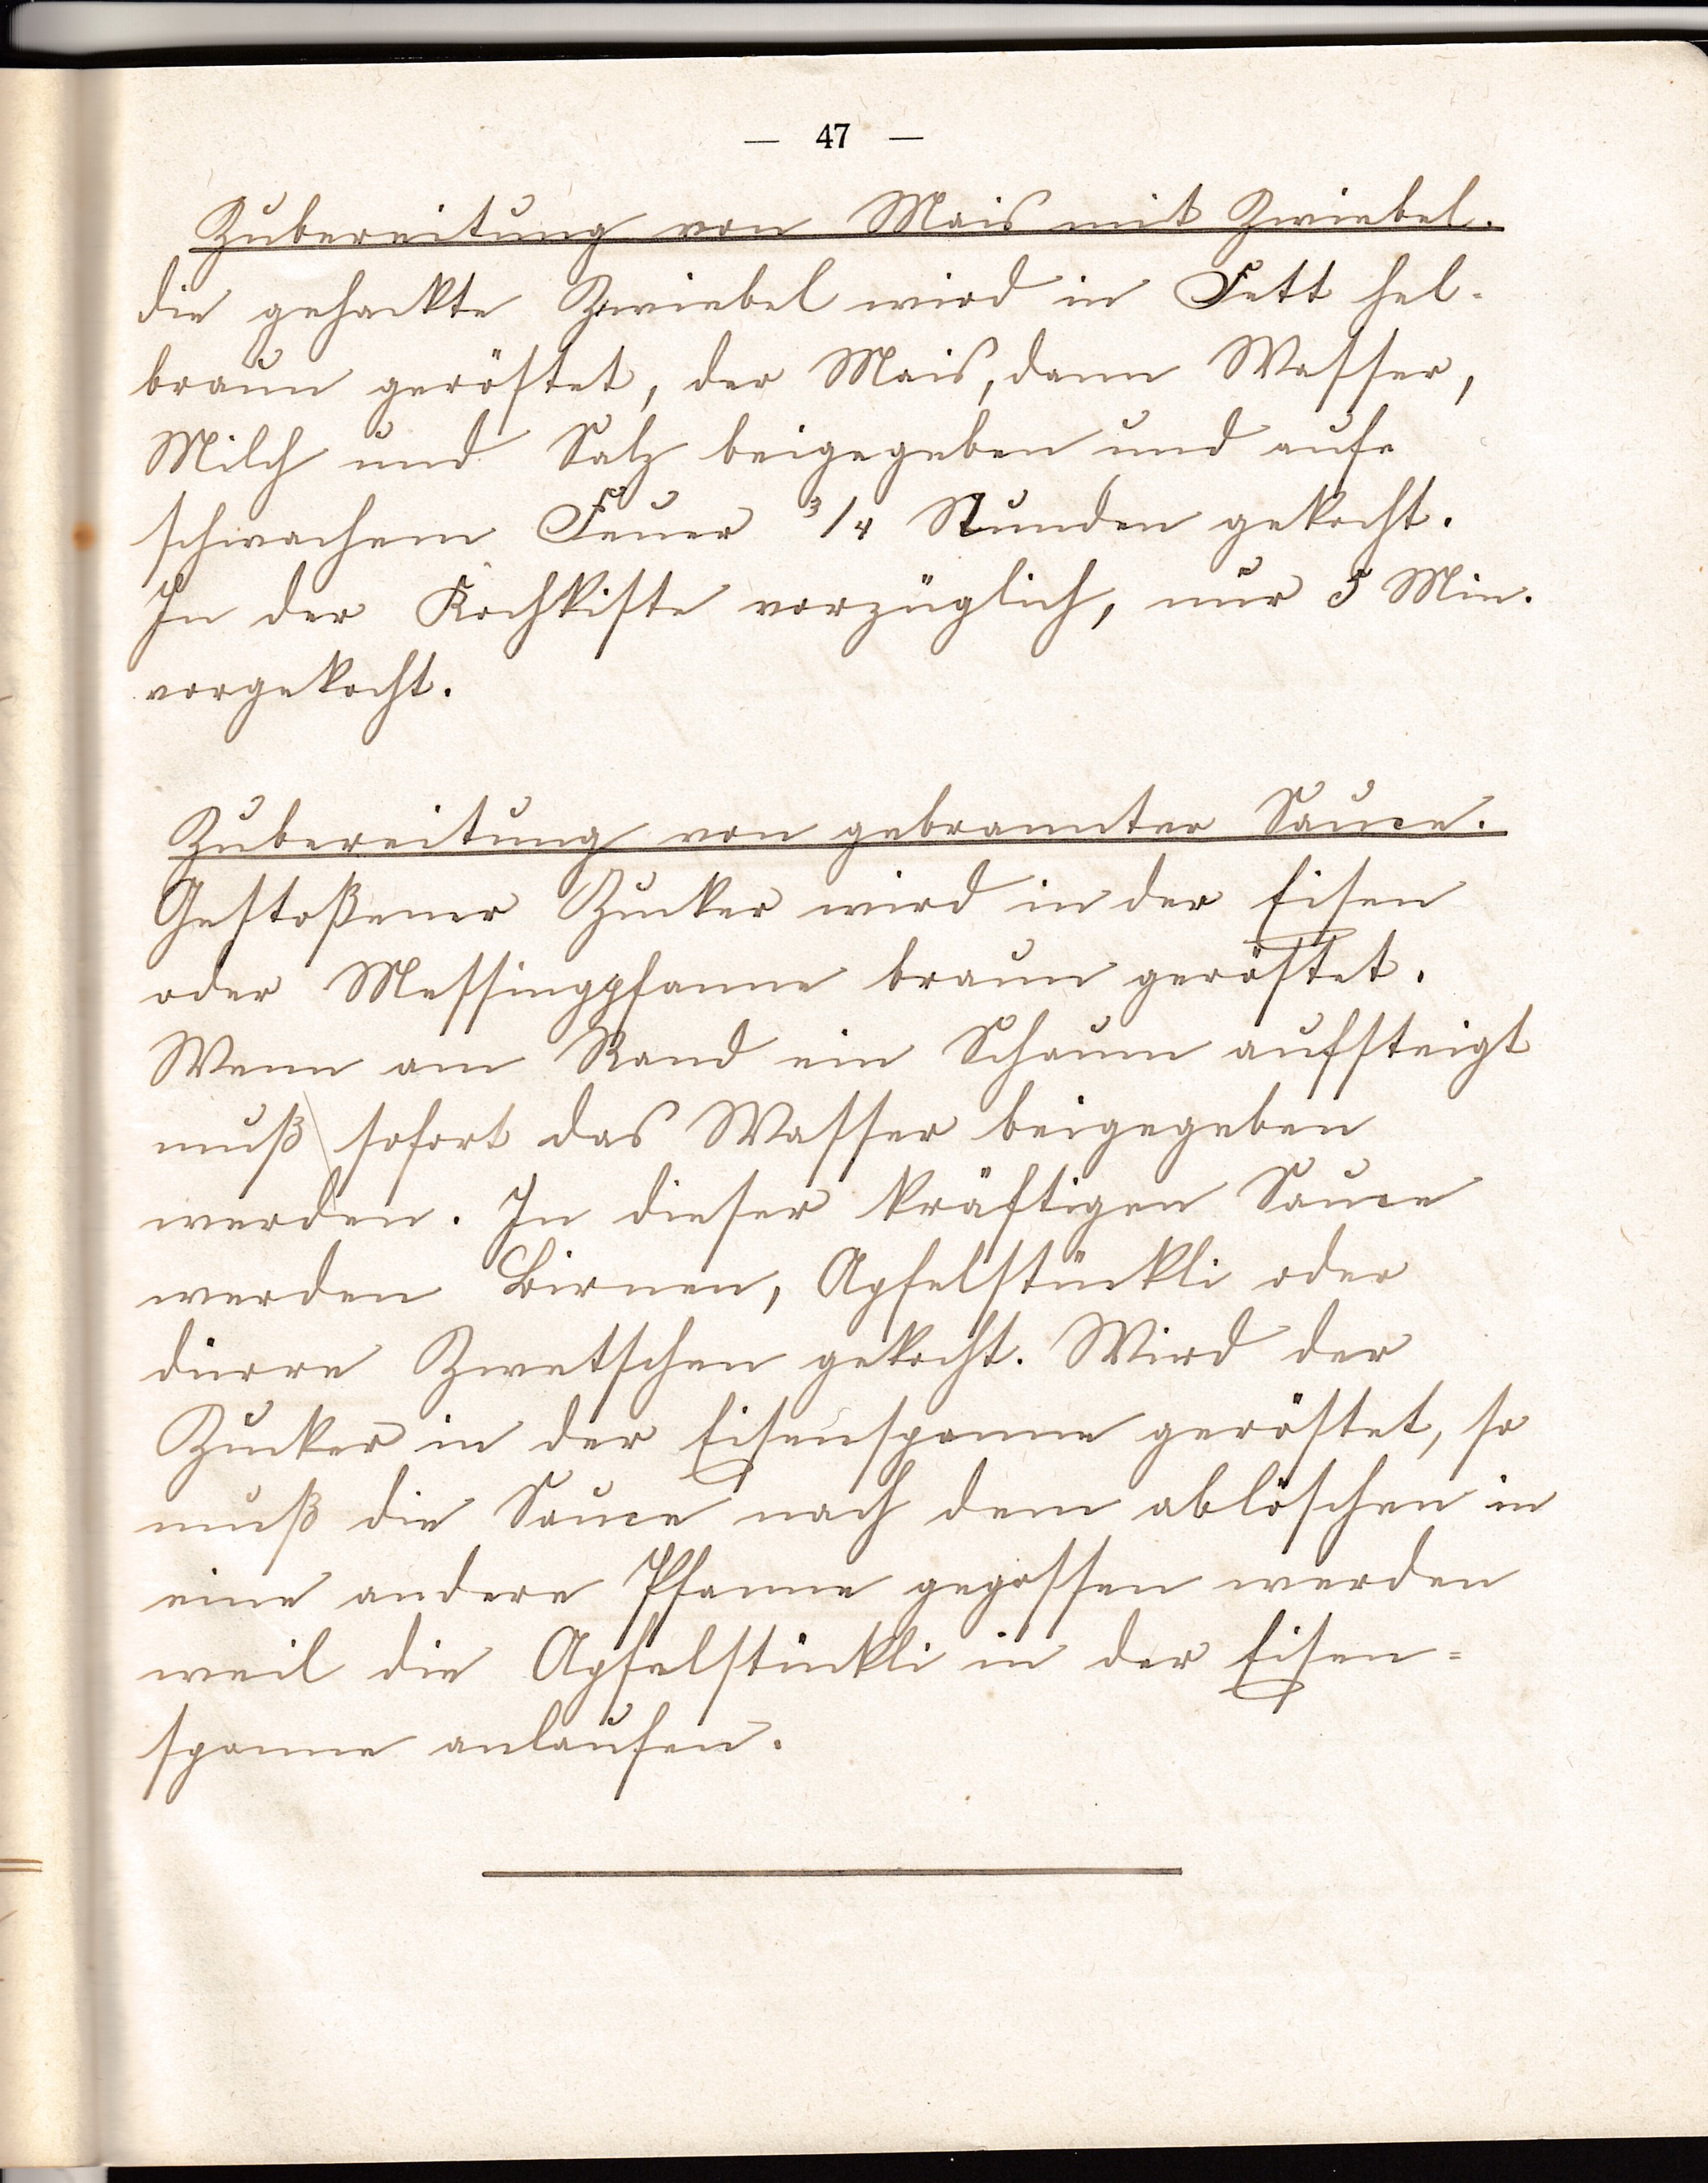 — 47 —
Zubereitung von Mais mit Zwiebel.
die gehackte Zwiebel wird in Fett hel-
braun geröstet, der Mais, dann Wasser,
Milch und Salz beigegeben und aufs
schwachem Feuer 3/4 Stunden gekocht.
In der Kochkiste vorzüglich, nur 5 Min.
vorgekocht.
Zubereitung von gebrannter Sauce.
Gestoßener Zucker wird in der Eisen
oder Messingpfanne braun geröstet.
Wenn am Rand ein Schaum aufsteigt
muß sofort das Wasser beigegeben
werden. In dieser kräftigen Sauce
werden Birnen, Apfelstückli oder
dürre Zwetschen gekocht. Wird der
Zucker in der Eisenspanne geröstet, so
muß die Sauce nach dem ablöschen in
eine andere Pfanne gegossen werden
weil die Apfelstückli in der Eisen=
spanne anlaufen.